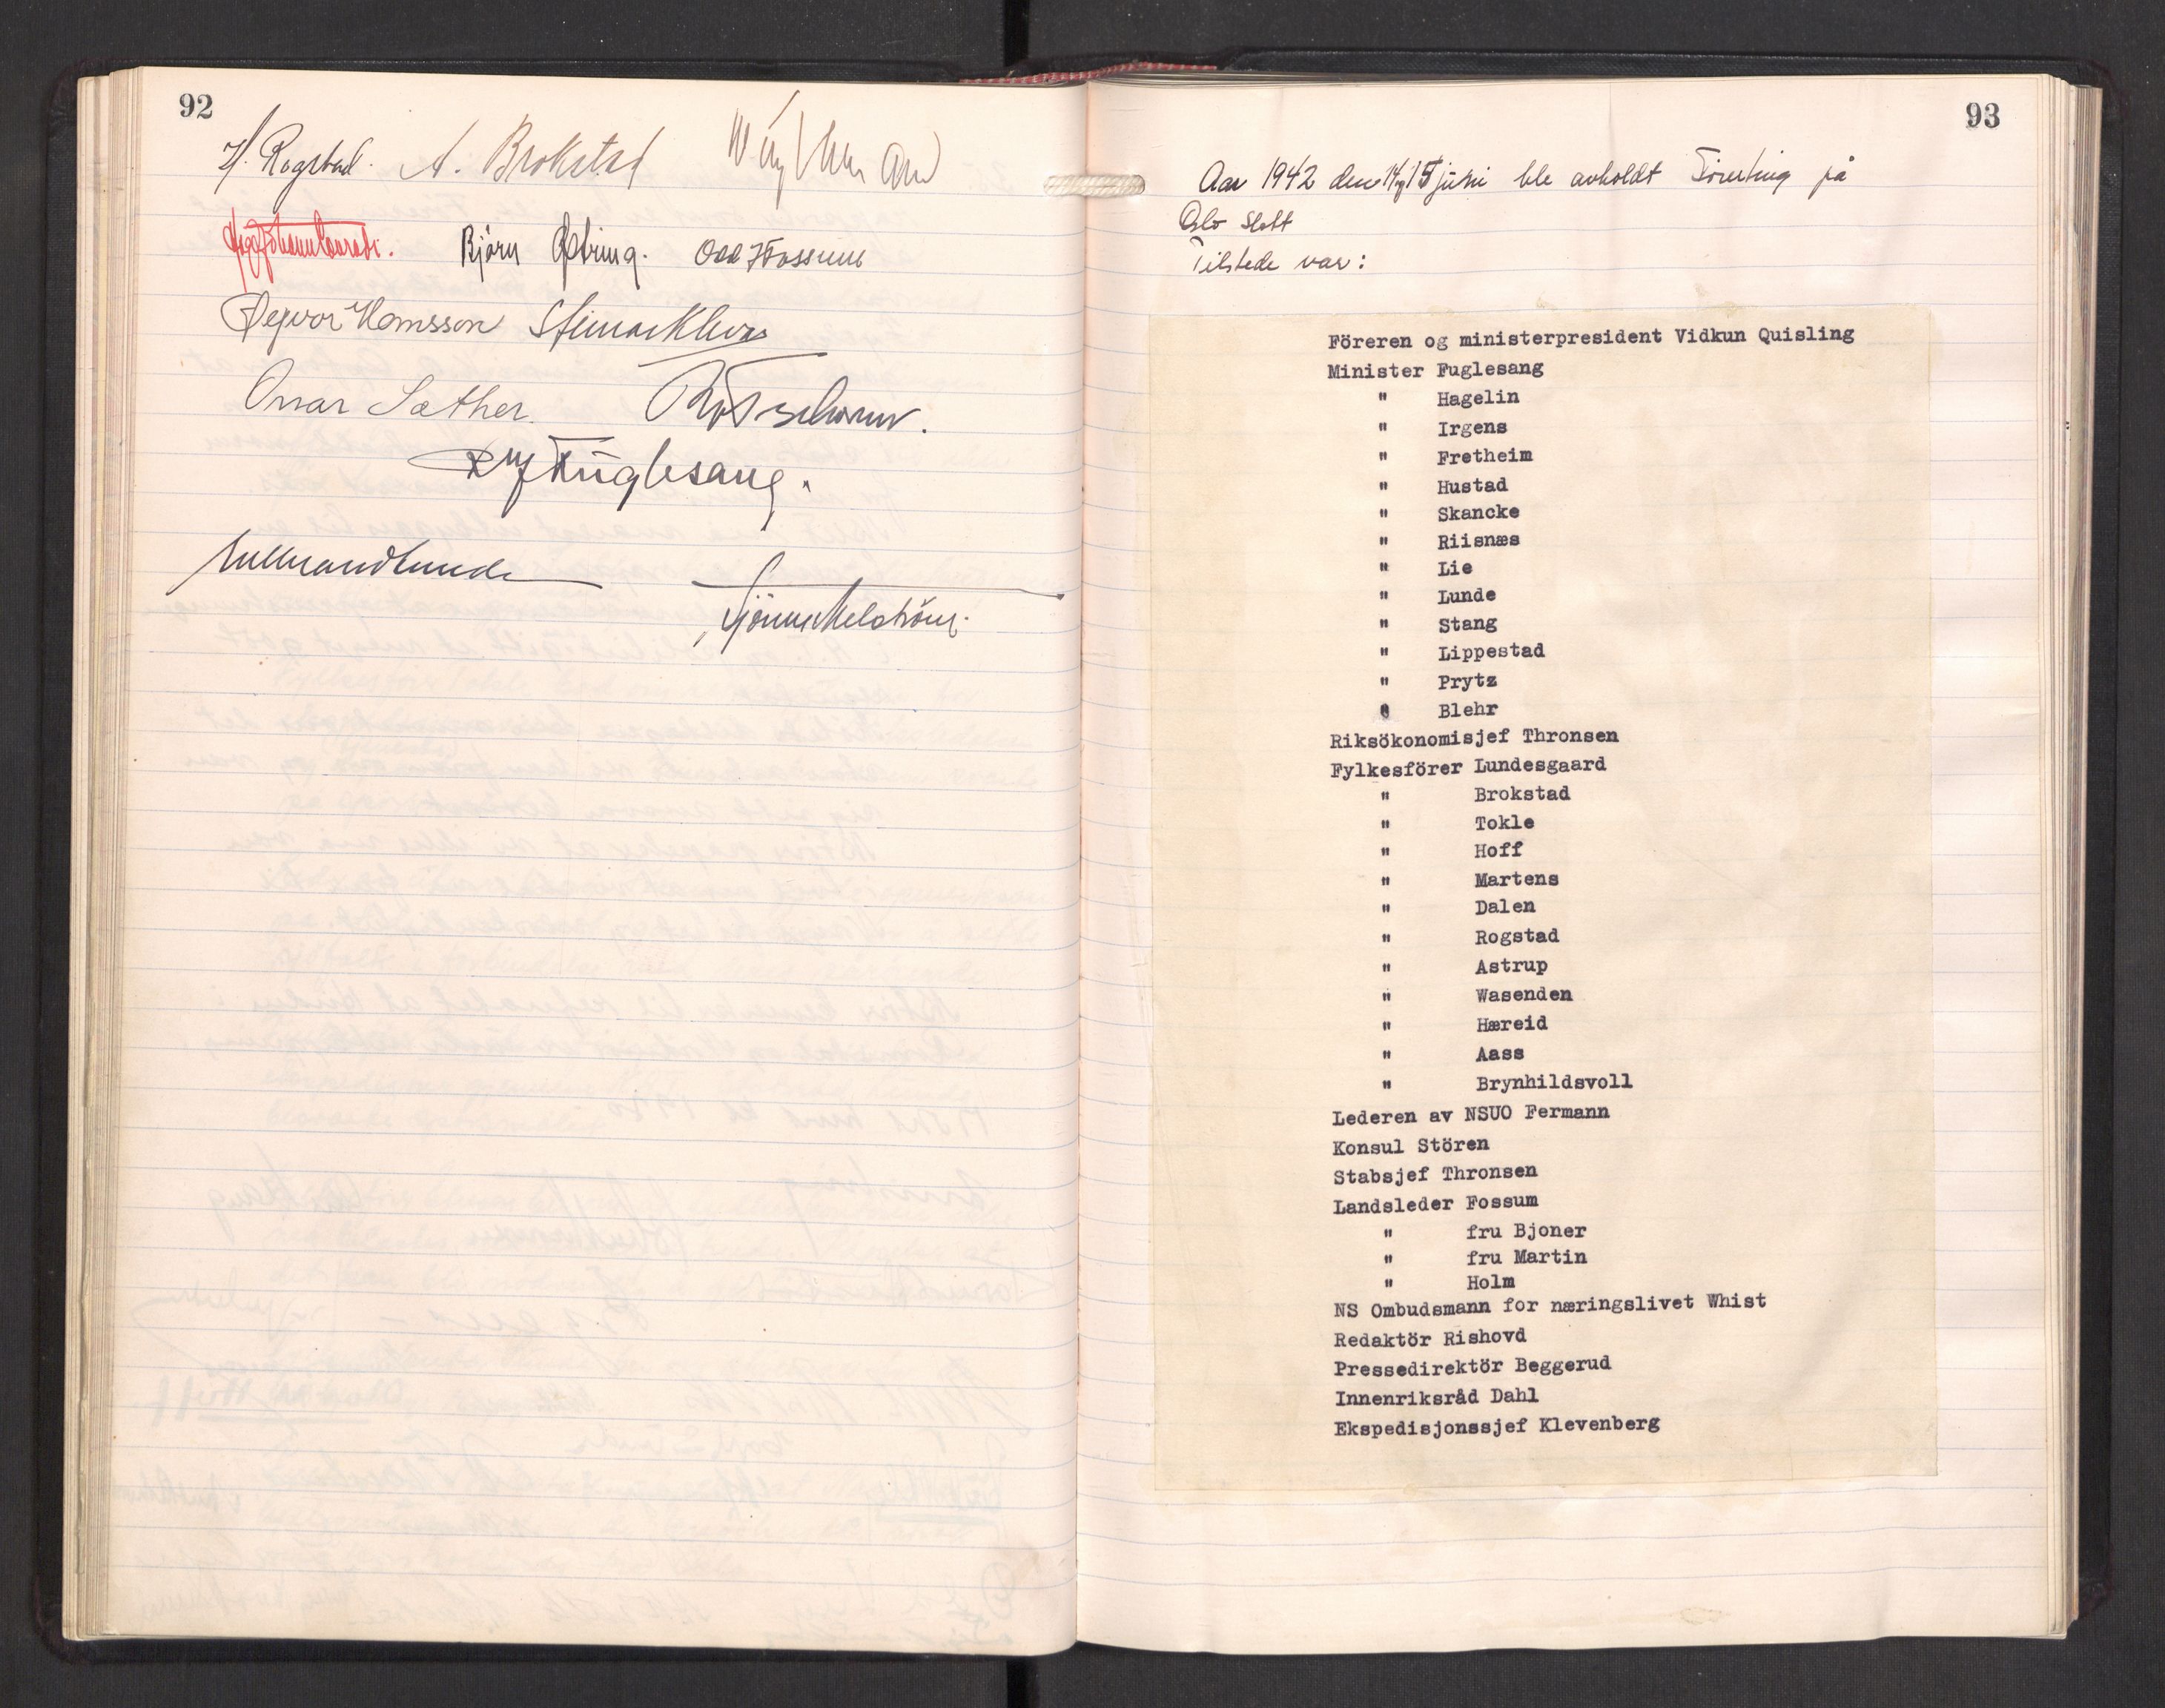 92
H. Rogstad. A. Brokstad
Björn Østring. Odd Fossum
Ragnvor Hamsson
Omar Sæther.
Fuglesang.
Gulbrand Lunde
93
Aar 1942 den 14 og 15 juni ble avholdt Förerting på
Oslo Slott
Tilstede var:
Föreren og ministerpresident Vidkun Quisling
Minister Fuglesang
" Hagelin
" Irgens
" Fretheim
" Hustad
" Skancke
" Riisnæs
" Lie
" Lunde
" Stang
" Lippestad
" Prytz
" Blehr
Riksökonomisjef Thronsen
Fylkesförer Lundesgaard
" Brokstad
" Tokle
" Hoff
" Martens
" Dalen
" Rogstad
" Astrup
" Wasenden
" Hæreid
" Aass
" Brynhildsvoll
Lederen av NSUO Fermann
Konsul Stören
Stabsjef Thronsen
Landsleder Fossum
" fru Bjoner
" fru Martin
" Holm
NS Ombudsmann for næringslivet Whist
Redaktör Rishovd
Pressedirektör Beggerud
Innenriksråd Dahl
Ekspedisjonssjef Klevenberg